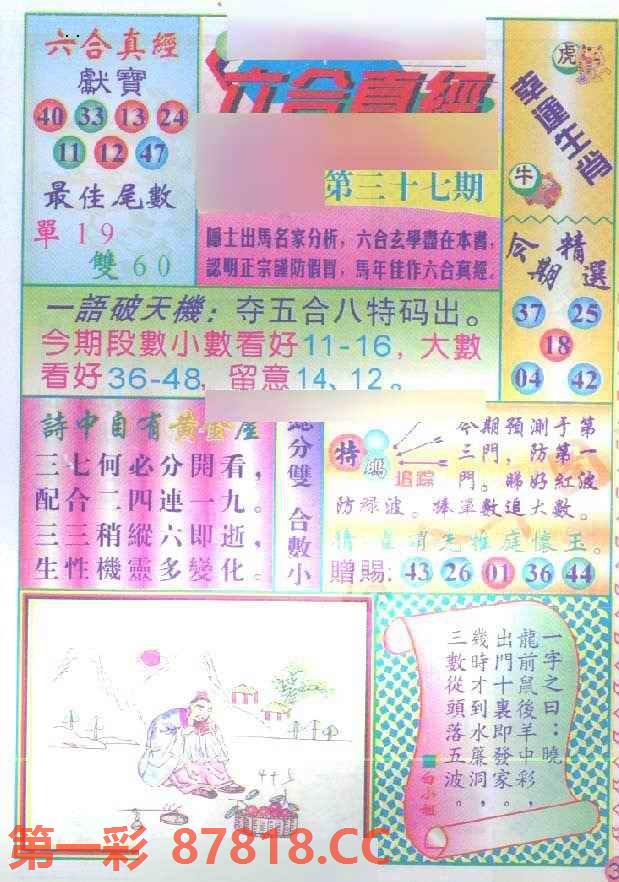 六合真經
獻寶
40 33 13 24
11 12 47
最佳尾數
單19
雙60
六合真經
第三十七期
隱士出馬名家分析，六合玄學盡在本書，
認明正宗謹防假冒，馬年佳作六合真經。
虎
幸運生肖
牛
今期精選
37 25
18
04 42
一語破天機：夺五合八特码出。
今期段數小數看好11-16，大數
看好36-48，留意14、12。
詩中自有黃金屋
三七何必分開看，
配合二四連一九。
三三稍縱六即逝，
生性機靈多變化。
總分雙 合數小
特碼
追踪
今期預測于第
三門，防第一
門。睇好紅波
防綠波。捧單數追大數。
懷玉。
贈賜：43 26 01 36 44
一字之曰：曉
龍前鼠後羊中彩，
出門十裏即發家。
幾時才到水簾洞，
三數從頭落五波。
白小姐
第一彩 87818.CC
3